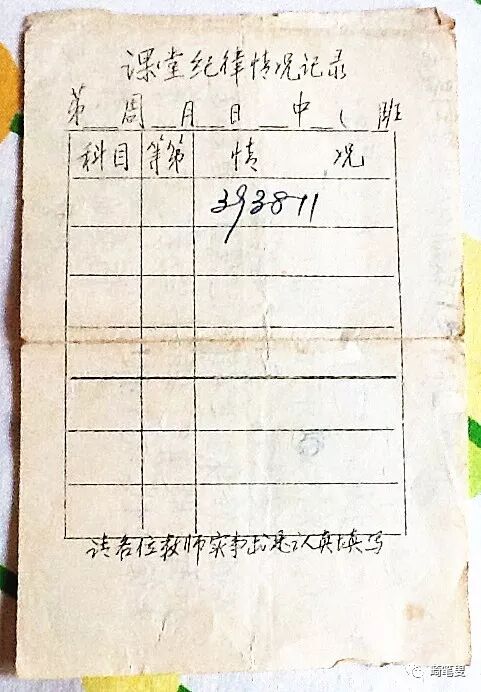 课堂纪律情况记录
第_周_月_日_中_( 班
科目 等第 情 况
393811
5
请各位教师实事求是认真填写
崎笔叟